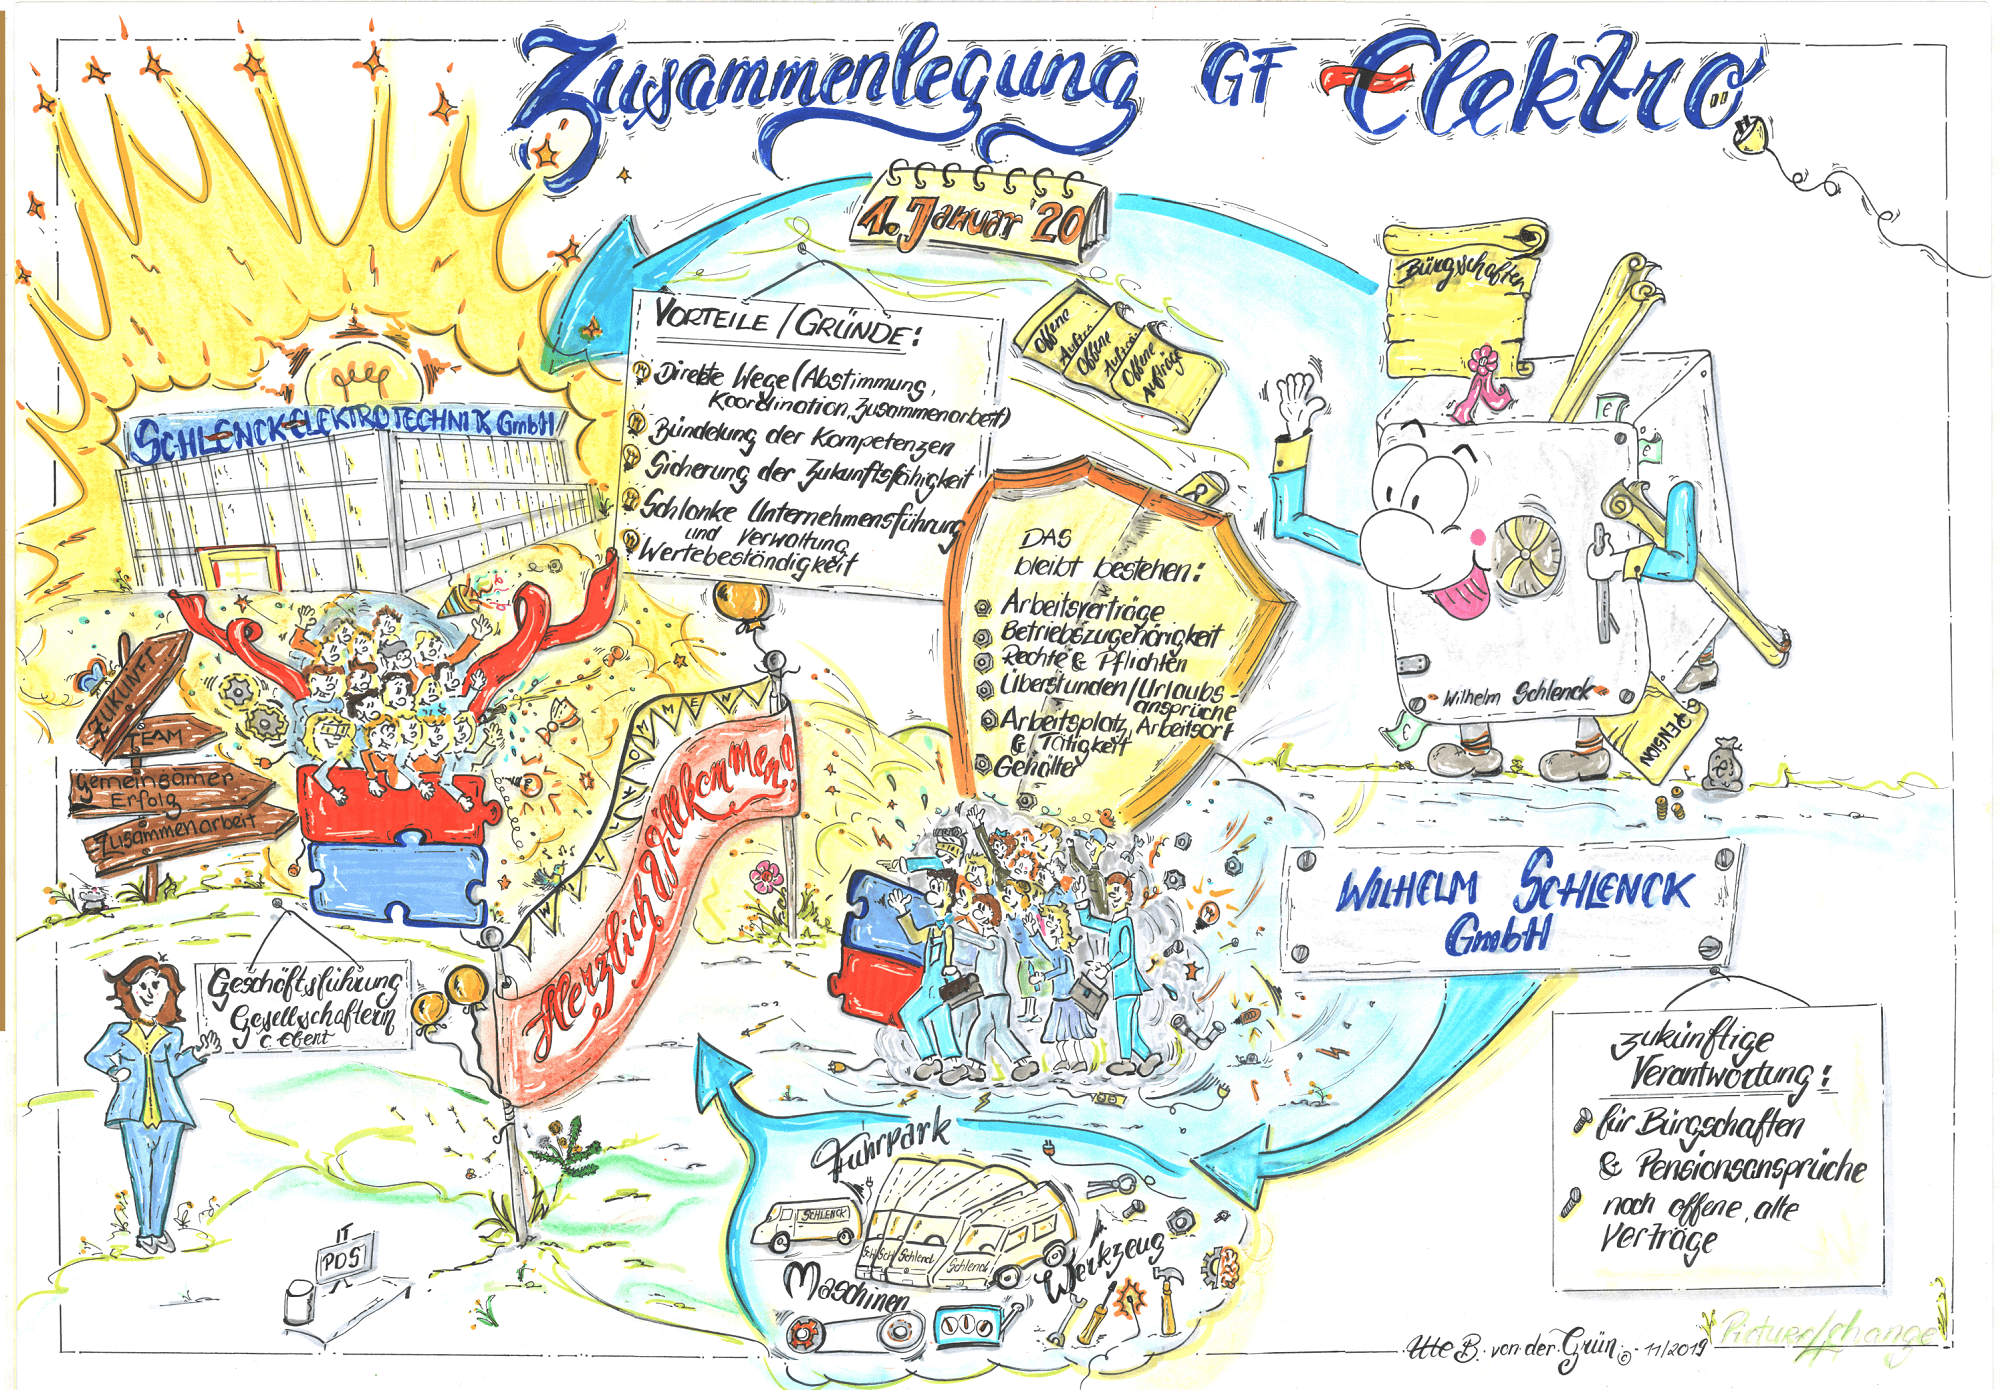 Zusammenlegung GF Elektro
1. Januar '20
Bürgschaften
VORTEILE / GRÜNDE:
Direkte Wege (Abstimmung,
Koordination, Zusammenarbeit)
Bündelung der Kompetenzen
Sicherung der Zukunftsfähigkeit
Schlanke Unternehmensführung
und Verwaltung
Wertebeständigkeit
Offene
Aufträ
Offene
Aufträ
Offene
Aufträge
SCHLENCK-ELEKTROTECHNIK GmbH
DAS
bleibt bestehen:
Arbeitsverträge
Betriebszugehörigkeit
Rechte & Pflichten
Überstunden/Urlaubs-
ansprüche
Arbeitsplatz, Arbeitsort
& Tätigkeit
Gehälter
Wilhelm Schlenck
PENSION
ZUKUNFT
TEAM
Gemeinsamer
Erfolg
Zusammenarbeit
WILLKOMMEN
Herzlich Willkommen!
WILHELM SCHLENCK
GmbH
Geschäftsführung
Gesellschafterin
C. Ebert
zukünftige
Verantwortung:
für Bürgschaften
& Pensionsansprüche
noch offene, alte
Verträge
Fuhrpark
SCHLENCK
Schl
Schl
Schlenck
Schlenck
Werkzeug
Maschinen
IT
PDS
Ute B. von der Grün © 11/2019
Picture/change